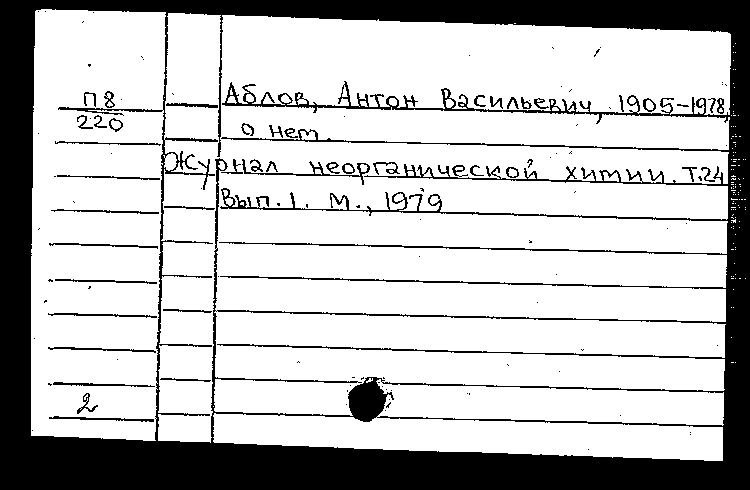 П8
220
Аблов, Антон Васильевич, 1905-1978,
о нем.
Журнал неорганической химии. Т.24
Вып. 1. М., 1979
2